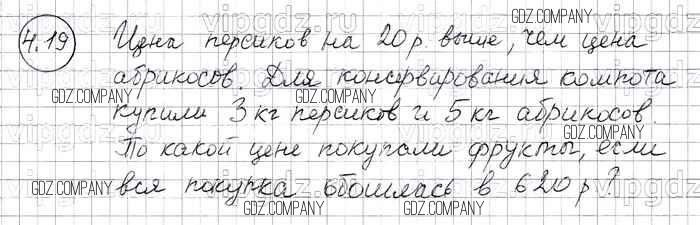 4.19 Цена персиков на 20 р. выше, чем цена
абрикосов. Для консервирования компота
купили 3 кг персиков и 5 кг абрикосов.
По какой цене покупали фрукты, если
вся покупка обошлась в 620 р?
GDZ.COMPANY
GDZ.COMPANY
GDZ.COMPANY
GDZ.COMPANY
GDZ.COMPANY
GDZ.COMPANY
GDZ.COMPANY
GDZ.COMPANY
vipgdz.ru